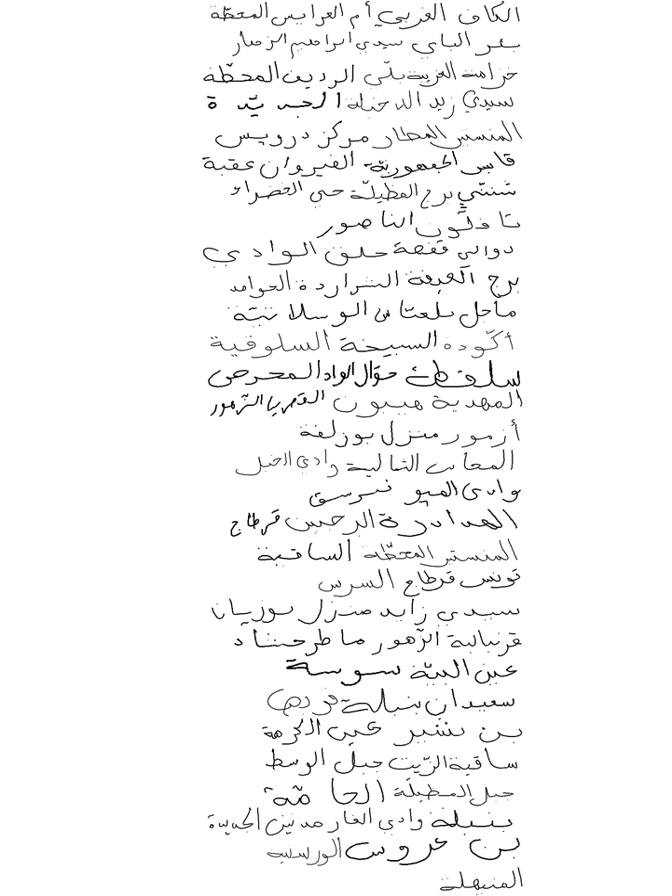 الكاف الغربي أم العرايس المحطة
بئر الباي سيدي ابراهيم الزهار
خزامة الغربية بلّي الرديف المحطّة
سيدي زيد الدخيلة الجديّدة
المنستير المطار مركز درويس
قابس الجمهورية القيروان عقبة
شنني برج المظيلّة حي الخضراء
تافلّون الناصور
دوالي قفصة حلق الوادي
برج العيفة الشراردة العوامد
ماجل بلعبّاس الوسلاتيّة
أكّوده السبيخة السلوقية
سلقطة حوّال الواد المحرص
المهدية هيبون القصريا الزّهور
أزمور منزل بوزلفة
المعاب الشمالية وادي الخيل
وادي الميو تبرسق
الهدادرة الرحمين قرطاج
المنستير المحطّة الساقية
تونس قرطاج السرس
سيدي زايد منزل بوزيان
قرنبالية الزّهور ماطر حشّاد
عين البيّة سوسة
سعيدان بنبلة
بن بشير عين الكرمة
ساقية الزّيت جبل الوسط
جبل المظيلّة الحامّة
بنبلة وادي الغار مدنين الجديدة
بن عروس الورسنية
المنيهلة